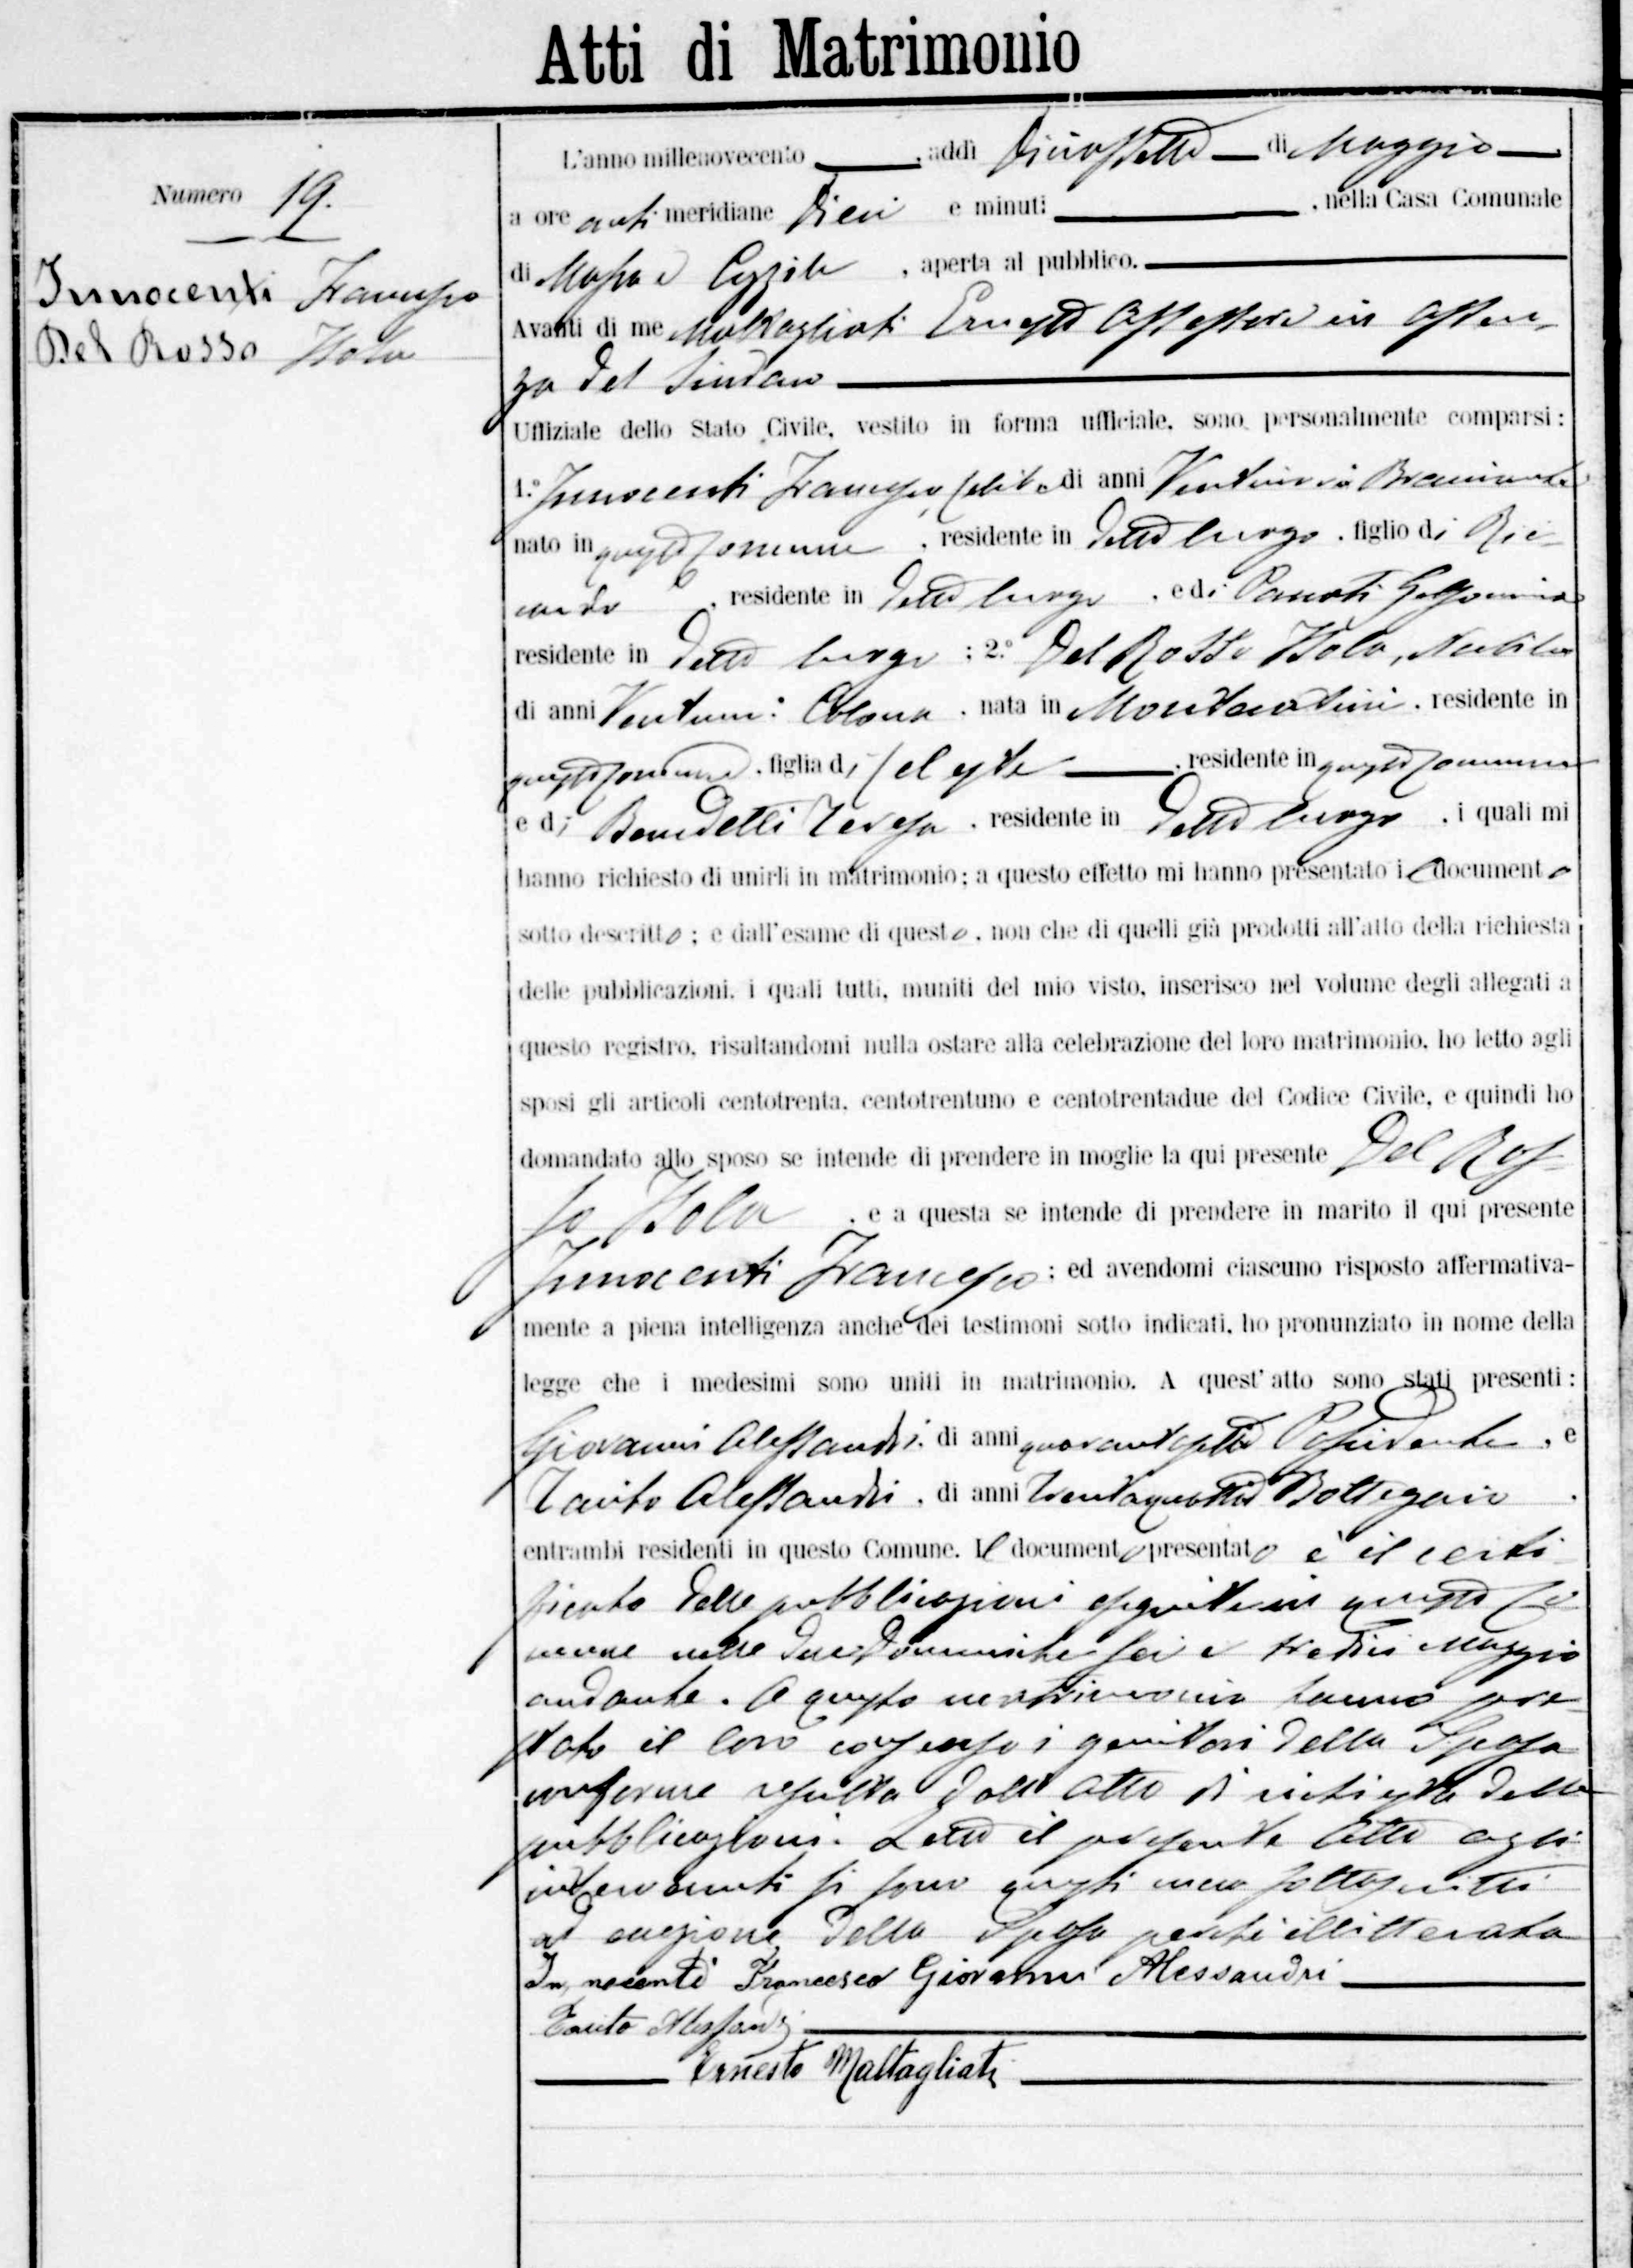 Atti di Matrimonio
Numero 19.
Innocenti Francesco
Del Rosso Itala
L'anno millenovecento , addì Diciassette di Maggio
a ore anti meridiane Dieci e minuti , nella Casa Comunale
di Massa e Cozzile , aperta al pubblico.
Avanti di me Maltagliati Ernesto Assessore in assen-
za del Sindaco
Uffiziale dello Stato Civile, vestito in forma ufficiale, sono personalmente comparsi:
1.° Innocenti Francesco, celibe di anni Bracciante
nato in questo Comune , residente in detto luogo , figlio di
, residente in detto luogo , e di Pannoti
residente in detto luogo ; 2.° Del Rosso Itala, Nubile
di anni Ventuno Colona , nata in Montecatini , residente in
questo Comune , figlia di Celeste , residente in questo Comune
e di Benedetti Teresa , residente in detto luogo , i quali mi
hanno richiesto di unirli in matrimonio; a questo effetto mi hanno presentato il documento
sotto descritto ; e dall'esame di questo , non che di quelli già prodotti all'atto della richiesta
delle pubblicazioni, i quali tutti, muniti del mio visto, inserisco nel volume degli allegati a
questo registro, risultandomi nulla ostare alla celebrazione del loro matrimonio, ho letto agli
sposi gli articoli centotrenta, centotrentuno e centotrentadue del Codice Civile, e quindi ho
domandato allo sposo se intende di prendere in moglie la qui presente Del Ros-
so Itala , e a questa se intende di prendere in marito il qui presente
Innocenti Francesco : ed avendomi ciascuno risposto affermativa-
mente a piena intelligenza anche dei testimoni sotto indicati, ho pronunziato in nome della
legge che i medesimi sono uniti in matrimonio. A quest'atto sono stati presenti:
Giovanni Alessandri , di anni quarantasette Possidente , e
Tacito Alessandri , di anni trentaquattro Bottegaio ,
entrambi residenti in questo Comune. Il documento presentato è il certi-
ficato delle pubblicazioni eseguite in questo Co-
mune nelle due Domeniche sei e tredici Maggio
andante. A questo matrimonio hanno pre-
stato il loro consenso i genitori della Sposa
conforme resulta dall'atto di richiesta delle
pubblicazioni. Letto il presente Atto agli
intervenuti si sono questi meco sottoscritti
ad eccezione della Sposa perché illitterata
Innocenti Francesco Giovanni Alessandri
Tacito Alessandri
Ernesto Maltagliati